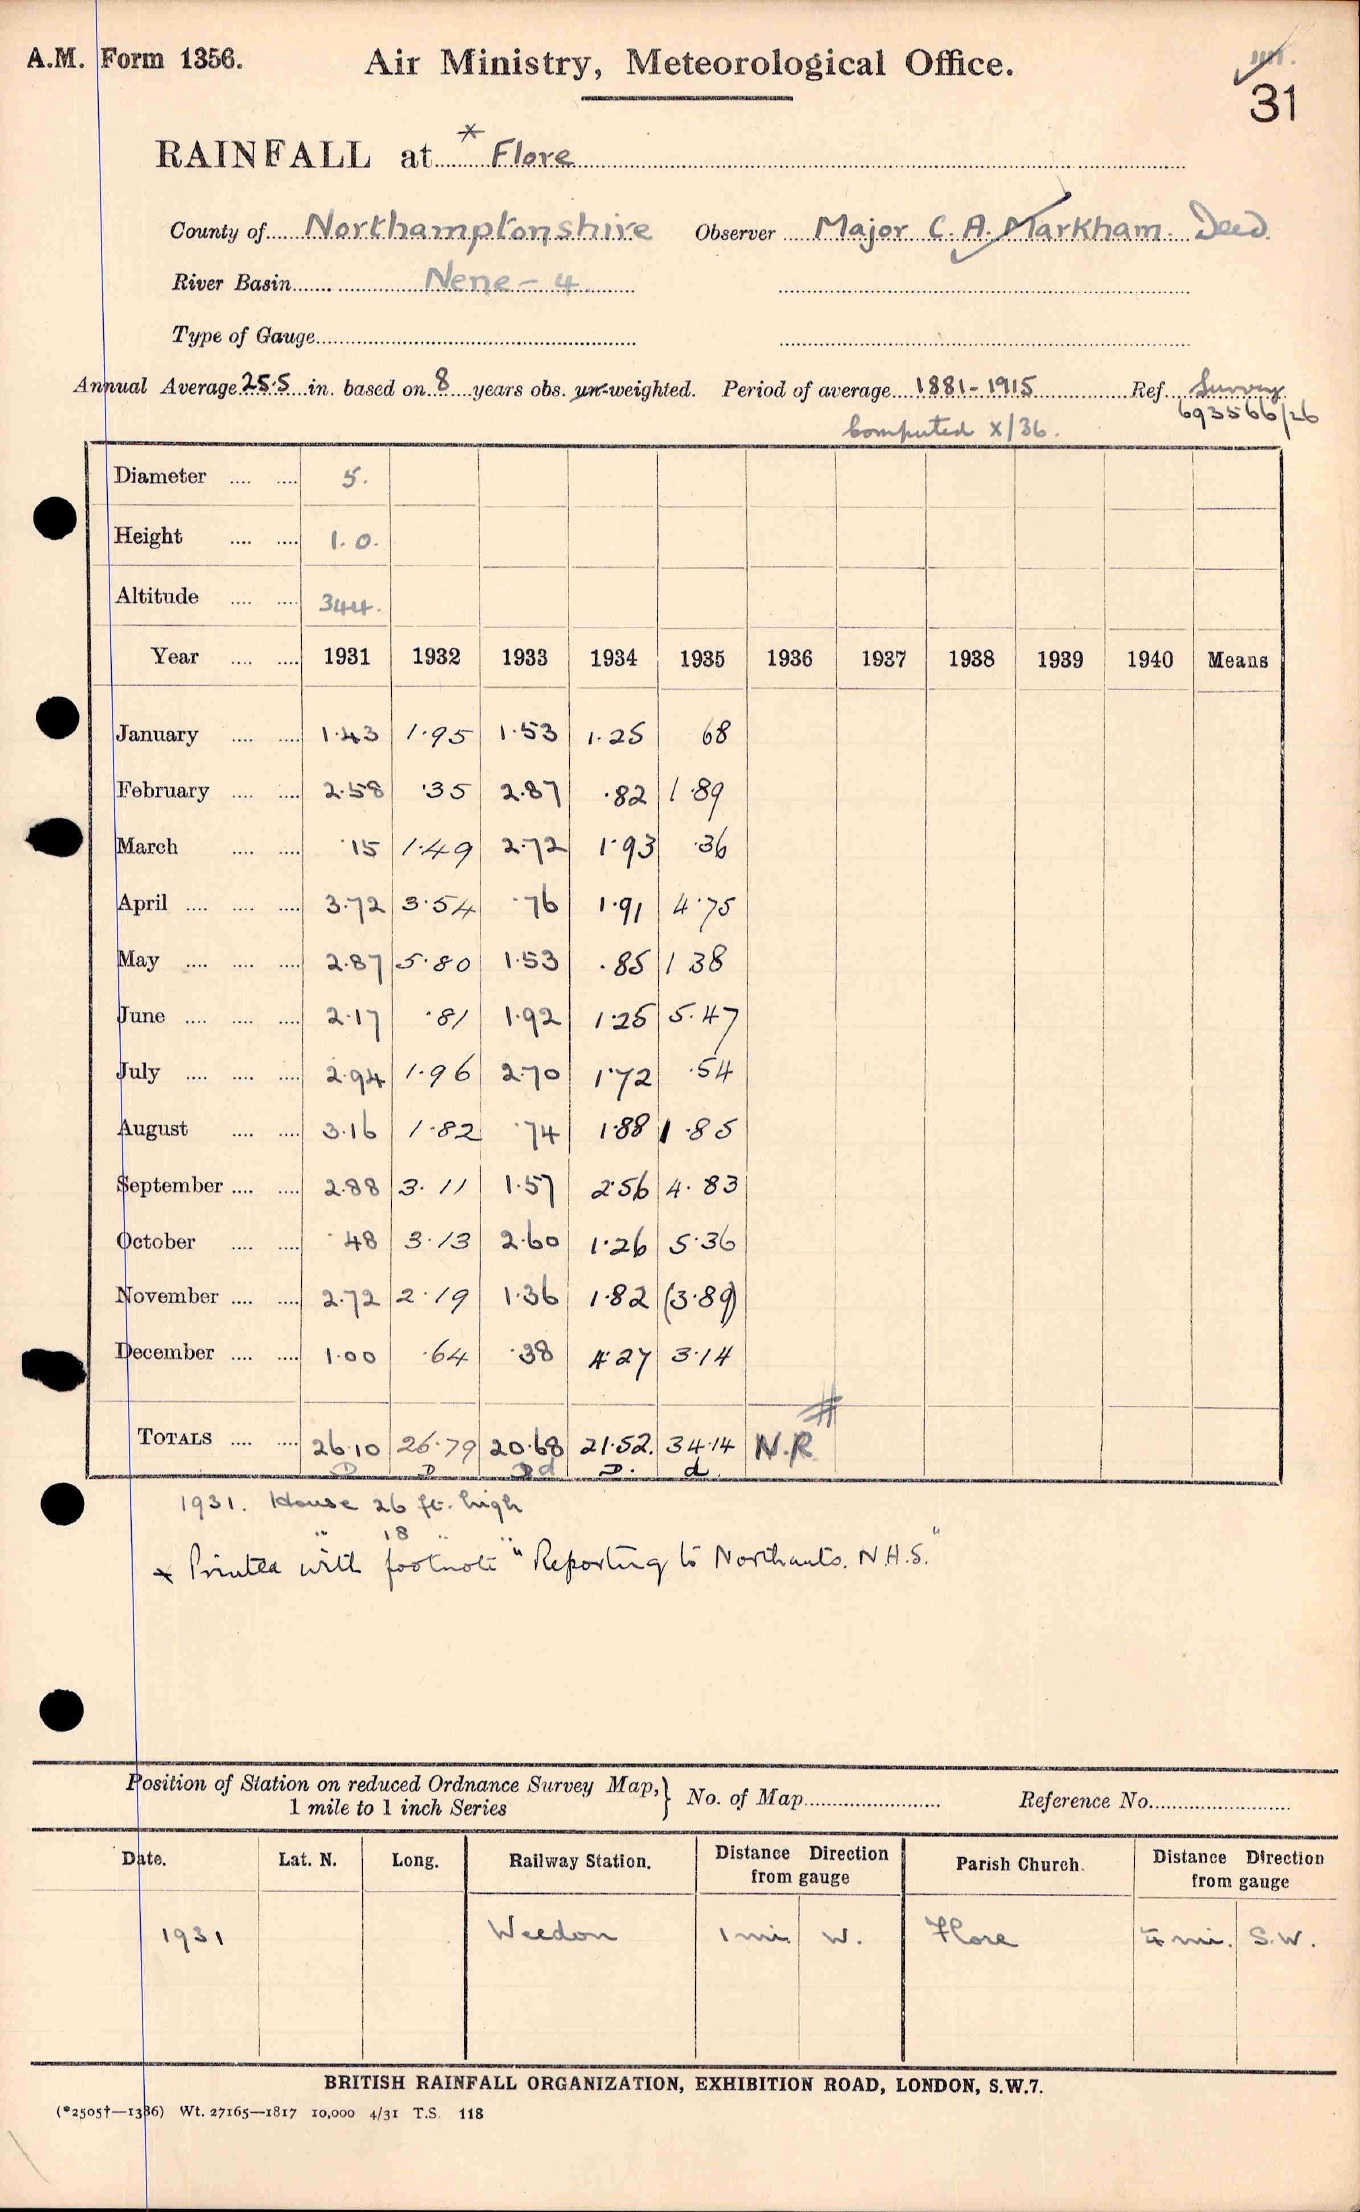 A.M. Form 1356.
Air Ministry, Meteorological Office.
31
RAINFALL at * Flore
County of Northamptonshire Observer Major C. A. Markham. Decd.
River Basin Nene - 4
Type of Gauge
Annual Average 25.5 in. based on 8 years obs. un-weighted. Period of average 1881-1915 Ref. Survey
693566/26
Computed X/36.
Diameter 5.
Height 1.0.
Altitude 344.
Year 1931 1932 1933 1934 1935 1936 1937 1938 1939 1940 Means
January 1.43 1.95 1.53 1.25 68
February 2.58 .35 2.87 .82 1 .89
March .15 1.49 2.72 1.93 .36
April 3.72 3.54 .76 1.91 4.75
May 2.87 5.80 1.53 .85 1 38
June 2.17 .81 1.92 1.25 5.47
July 2.94 1.96 2.70 1.72 .54
August 3.16 1.82 .74 1.88 1.85
September 2.88 3.11 1.57 2.56 4.83
October .48 3.13 2.60 1.26 5.36
November 2.72 2.19 1.36 1.82 (3.89)
December 1.00 .64 .38 4.27 3.14
#
TOTALS 26.10 26.79 20.68 21.52. 34.14 N.R.
D D D d D. d.
1931. House 26 ft. high
" 18 " "
* Printed with footnote "Reporting to Northants. N.H.S."
Position of Station on reduced Ordnance Survey Map,} No. of Map Reference No.
1 mile to 1 inch Series
Date. Lat. N. Long. Railway Station. Distance Direction from gauge Parish Church. Distance Direction from gauge
1931 Weedon 1 mi. W. Flore ¼ mi. S.W.
BRITISH RAINFALL ORGANIZATION, EXHIBITION ROAD, LONDON, S.W.7.
(*2505†—1386) Wt. 27165—1817 10,000 4/31 T.S. 118